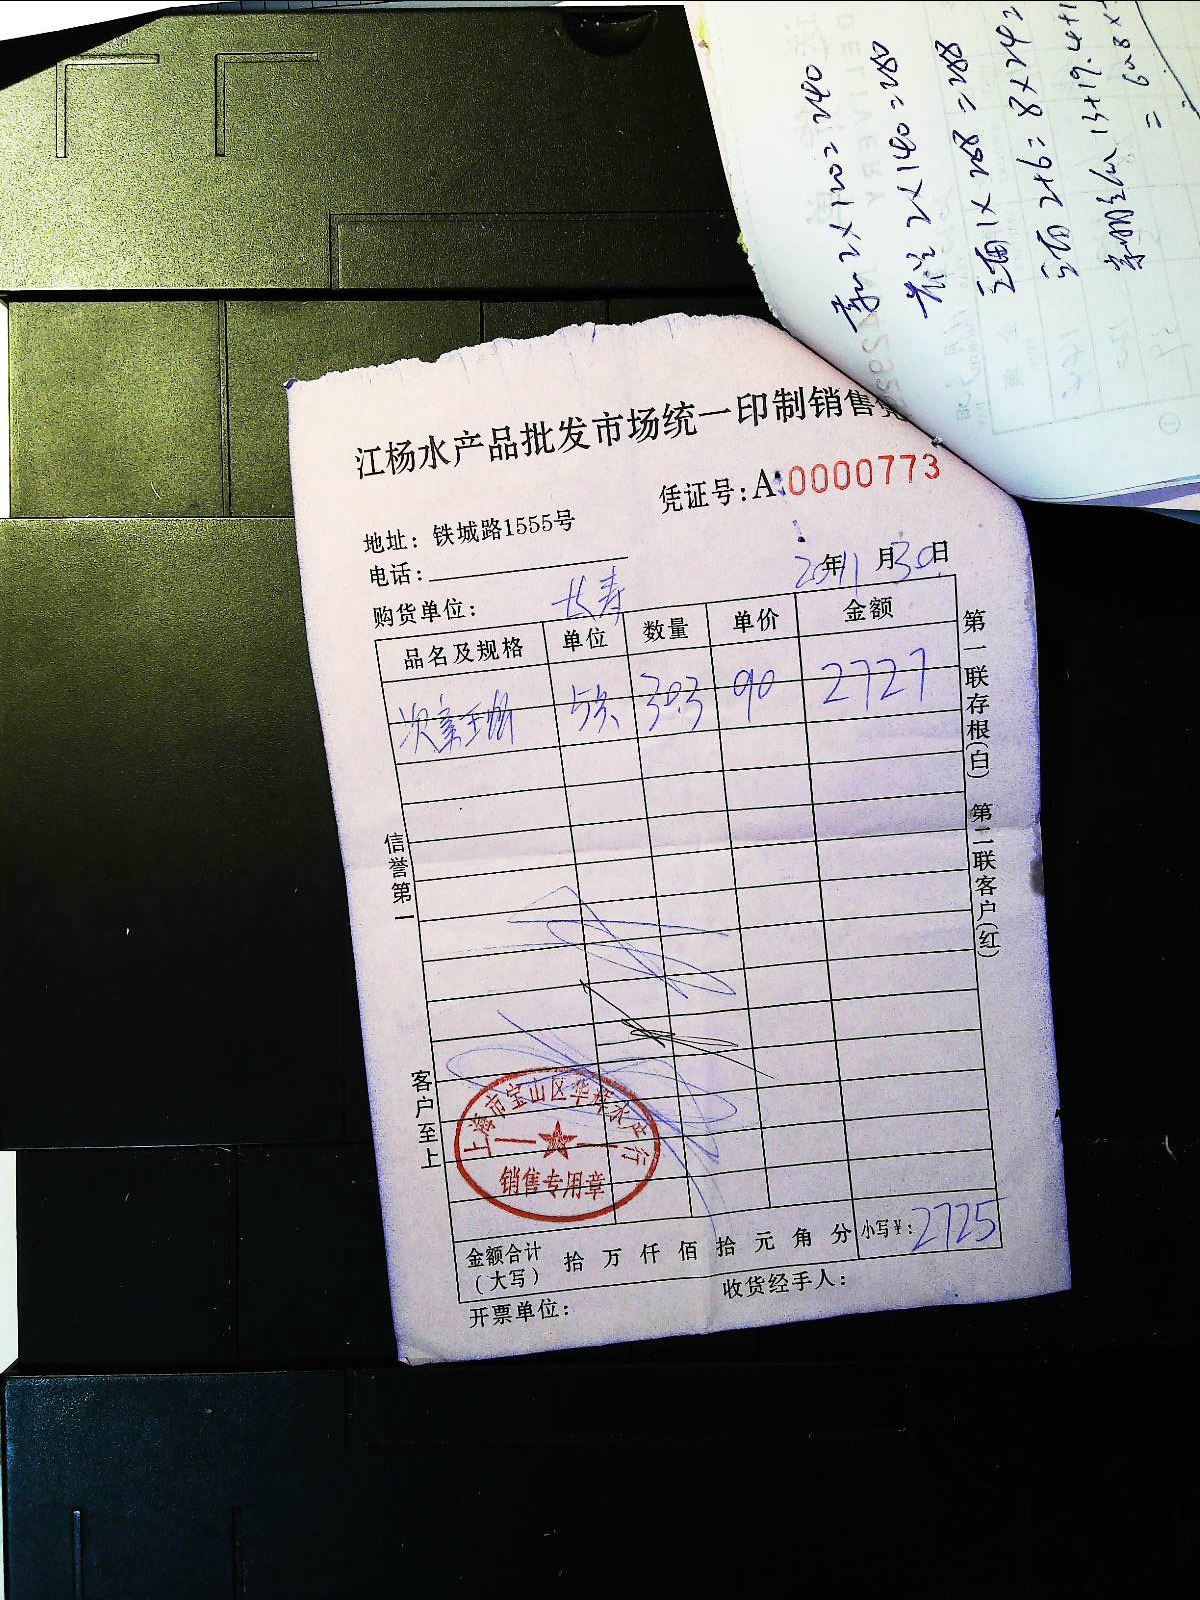 江杨水产品批发市场统一印制销售凭
凭证号:A:0000773
地址: 铁城路1555号
20年11月30日
电话:
购货单位: 长寿
品名及规格 单位 数量 单价 金额
5条 30.3 90 2727
信誉第一
客户至上
第一联存根(白) 第二联客户(红)
上海市宝山区华祥水产行
销售专用章
金额合计(大写) 拾 万 仟 佰 拾 元 角 分 小写¥: 2725
开票单位: 收货经手人:
DELIVERY
2×120=240
2×140=280
1×288=288
2+6=8×242
13+19.4+1